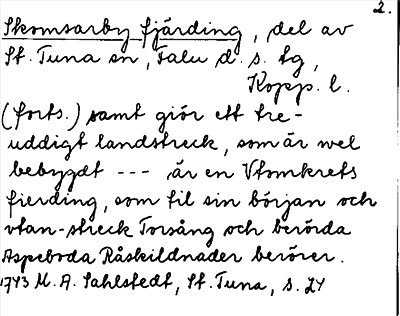 2.
Skomsarby fjärding, del av
St. Tuna sn, Falu d. s. tg,
Kopp. l.
(forts.) samt giör ett tre-
uddigt landstreck, som är wel
bebygdt --- är en Vtomkrets
fierding, som til sin början och
vtan-streck Torsång och berörda
Aspeboda Råskildnader berörer.
1743 M. A. Sahlstedt, St. Tuna, s. 24